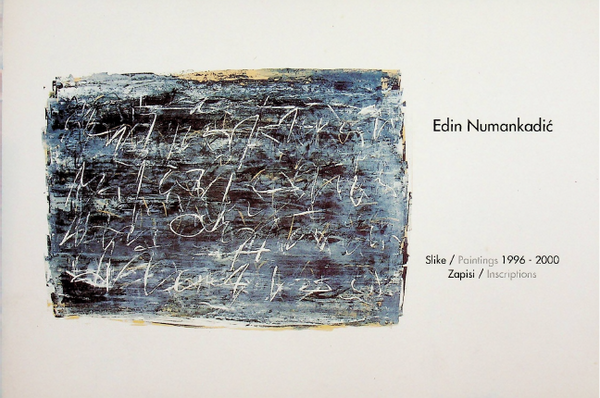 Edin Numankadić
Slike / Paintings 1996 - 2000
Zapisi / Inscriptions